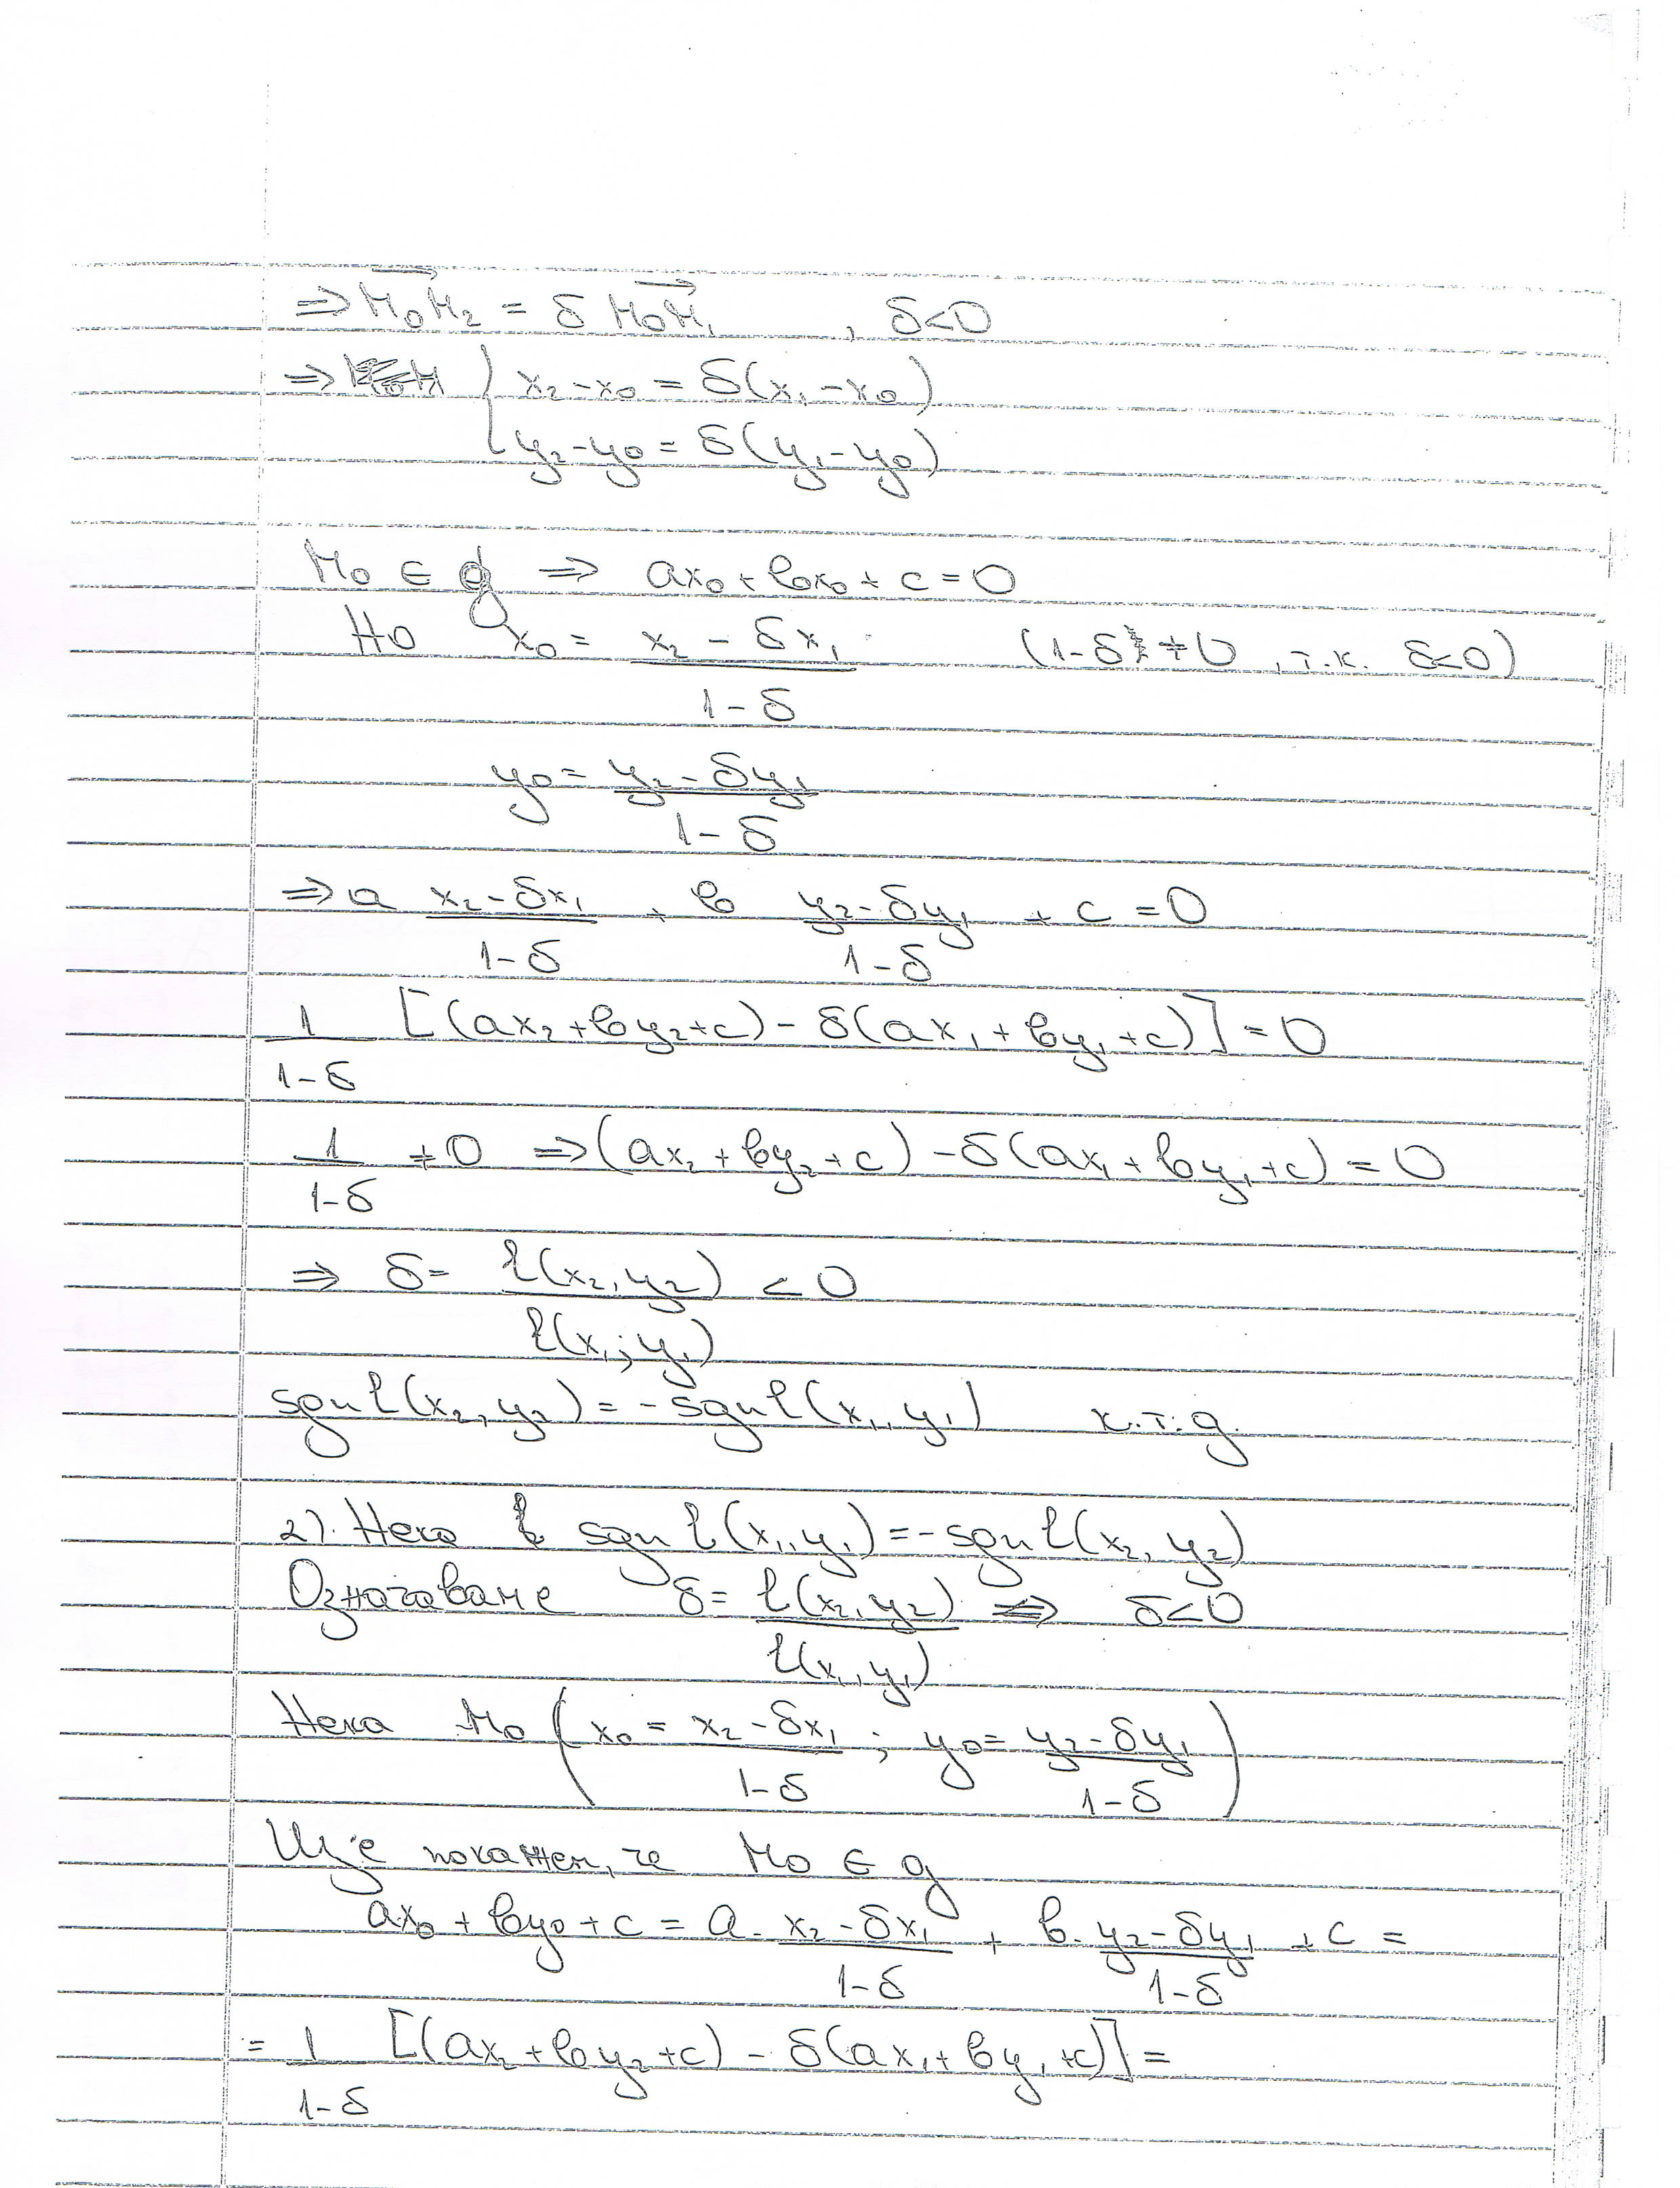 ⇒ M₀M₂ = δ M₀M₁ , δ<0
⇒ { x₂-x₀ = δ(x₁-x₀)
y₂-y₀ = δ(y₁-y₀)
M₀ ∈ g ⇒ ax₀ + bx₀ + c = 0
Но x₀ = (x₂ - δx₁)/(1-δ) (1-δ ≠ 0, т.к. δ<0)
y₀ = (y₂-δy₁)/(1-δ)
⇒ a (x₂-δx₁)/(1-δ) + b (y₂-δy₁)/(1-δ) + c = 0
1/(1-δ) [(ax₂+by₂+c) - δ(ax₁+by₁+c)] = 0
1/(1-δ) ≠ 0 ⇒ (ax₂+by₂+c) - δ(ax₁+by₁+c) = 0
⇒ δ = l(x₂, y₂)/l(x₁; y₁) < 0
sgn l(x₂, y₂) = - sgn l(x₁, y₁) к.т.д.
2). Нека sgn l(x₁, y₁) = - sgn l(x₂, y₂)
Означаваме δ = l(x₂, y₂)/l(x₁, y₁) ⇒ δ<0
Нека M₀ (x₀ = (x₂-δx₁)/(1-δ) ; y₀ = (y₂-δy₁)/(1-δ))
Ще покажем, че M₀ ∈ g
ax₀ + by₀ + c = a. (x₂-δx₁)/(1-δ) + b. (y₂-δy₁)/(1-δ) + c =
= 1/(1-δ) [(ax₂+by₂+c) - δ(ax₁+by₁+c)] =